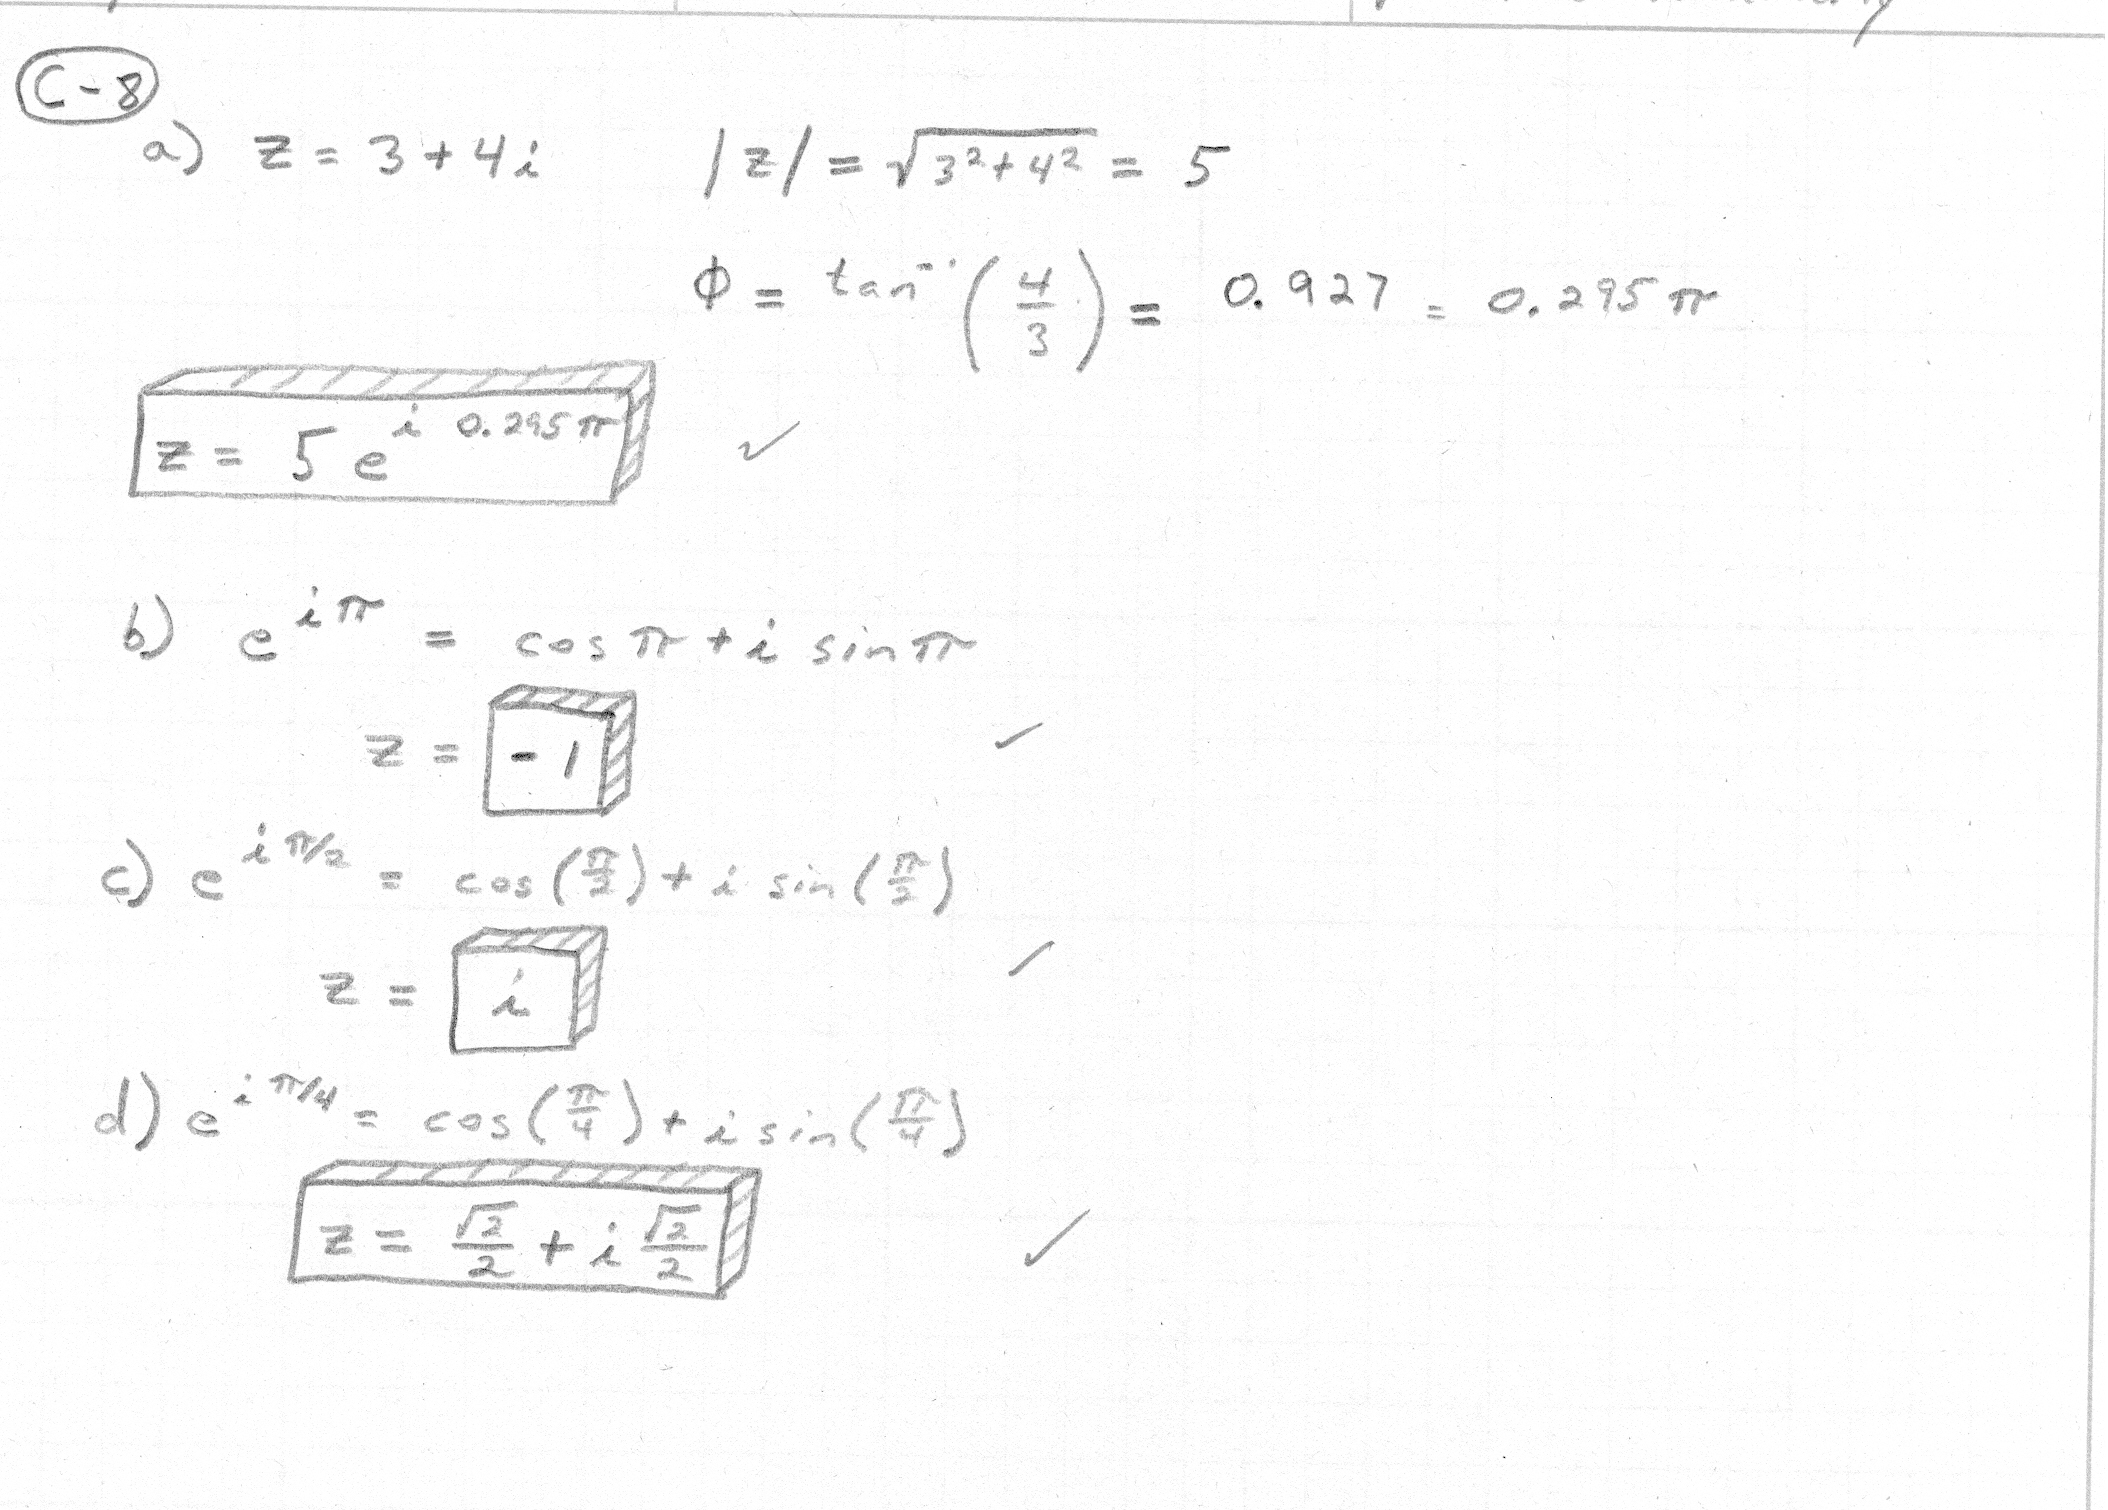 C-8
a) z = 3 + 4i |z| = √(3² + 4²) = 5
ϕ = tan⁻¹(4/3) = 0.927 = 0.295π
z = 5 e^{i 0.295π} ✓
b) e^{iπ} = cos π + i sin π
z = -1 ✓
c) e^{iπ/2} = cos(π/2) + i sin(π/2)
z = i ✓
d) e^{iπ/4} = cos(π/4) + i sin(π/4)
z = √2/2 + i √2/2 ✓